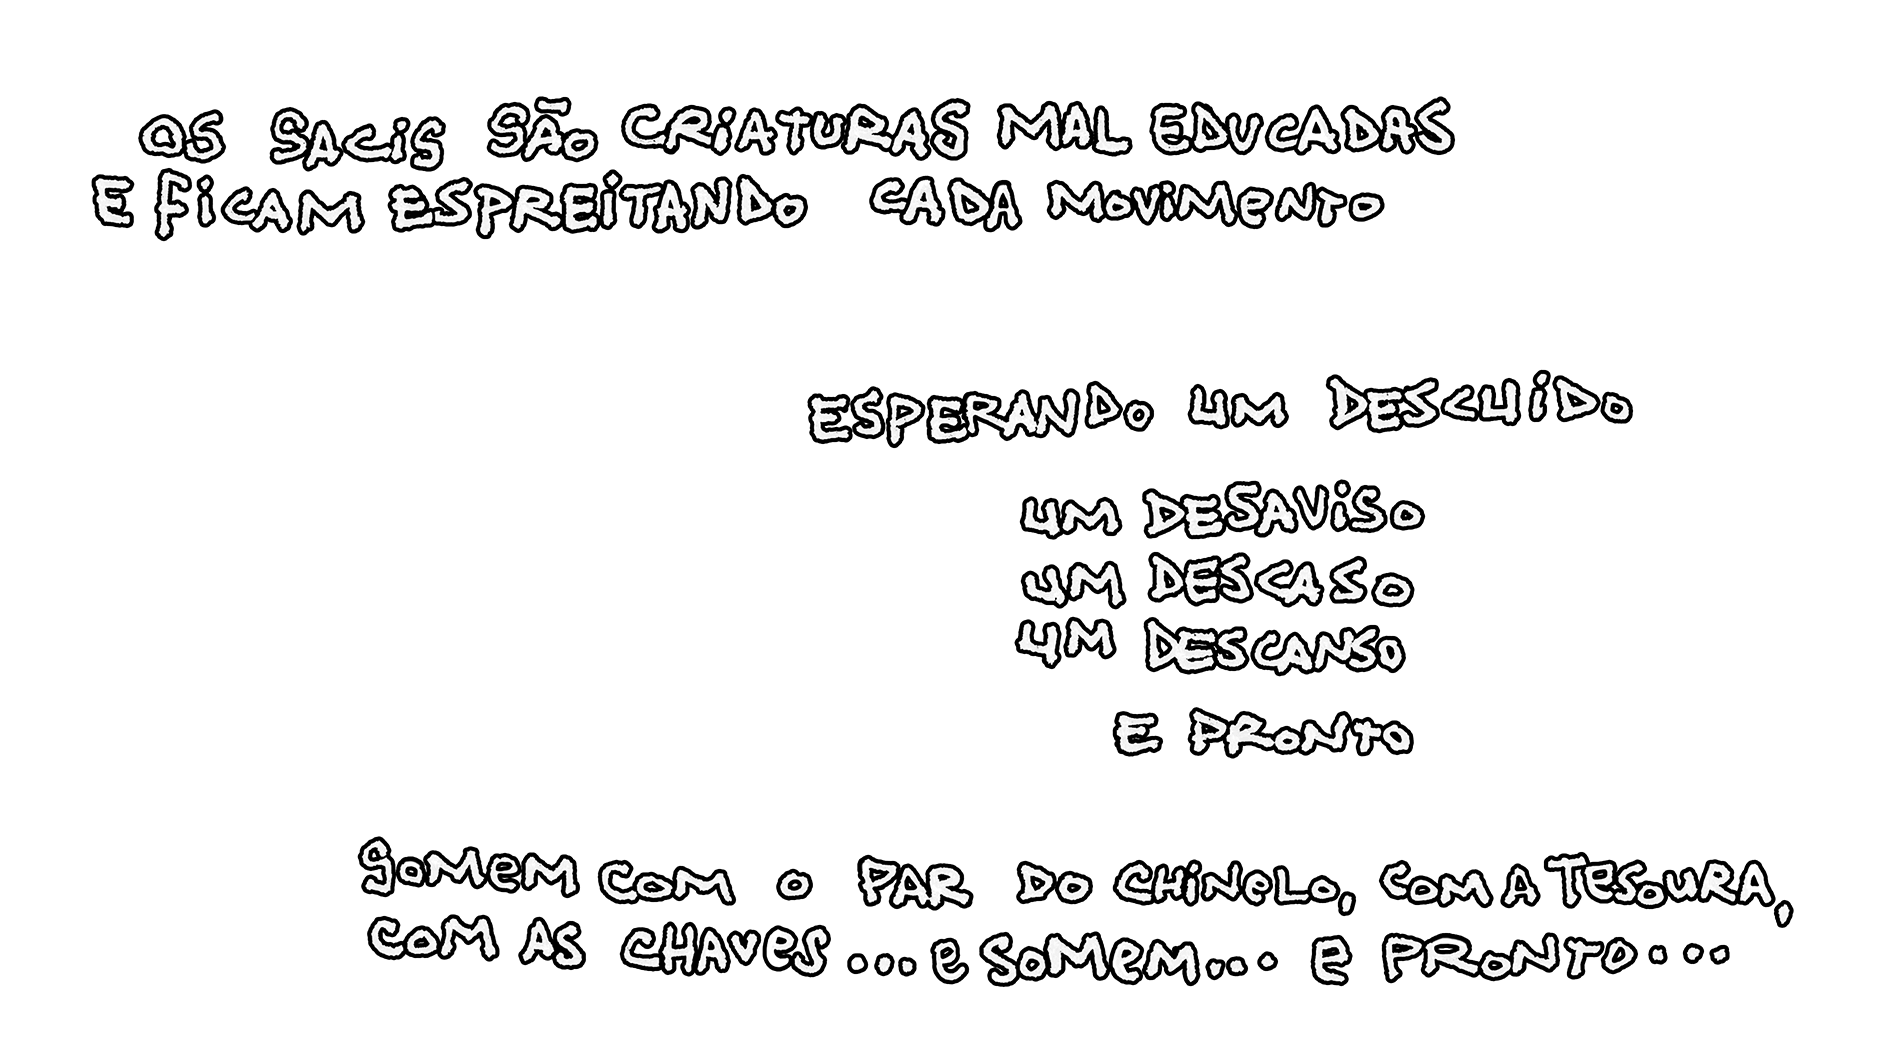 OS SACIS SÃO CRIATURAS MAL EDUCADAS
E FICAM ESPREITANDO CADA MOVIMENTO
ESPERANDO UM DESCUIDO
UM DESAVISO
UM DESCASO
UM DESCANSO
E PRONTO
SOMEM COM O PAR DO CHINELO, COM A TESOURA,
COM AS CHAVES... E SOMEM... E PRONTO...